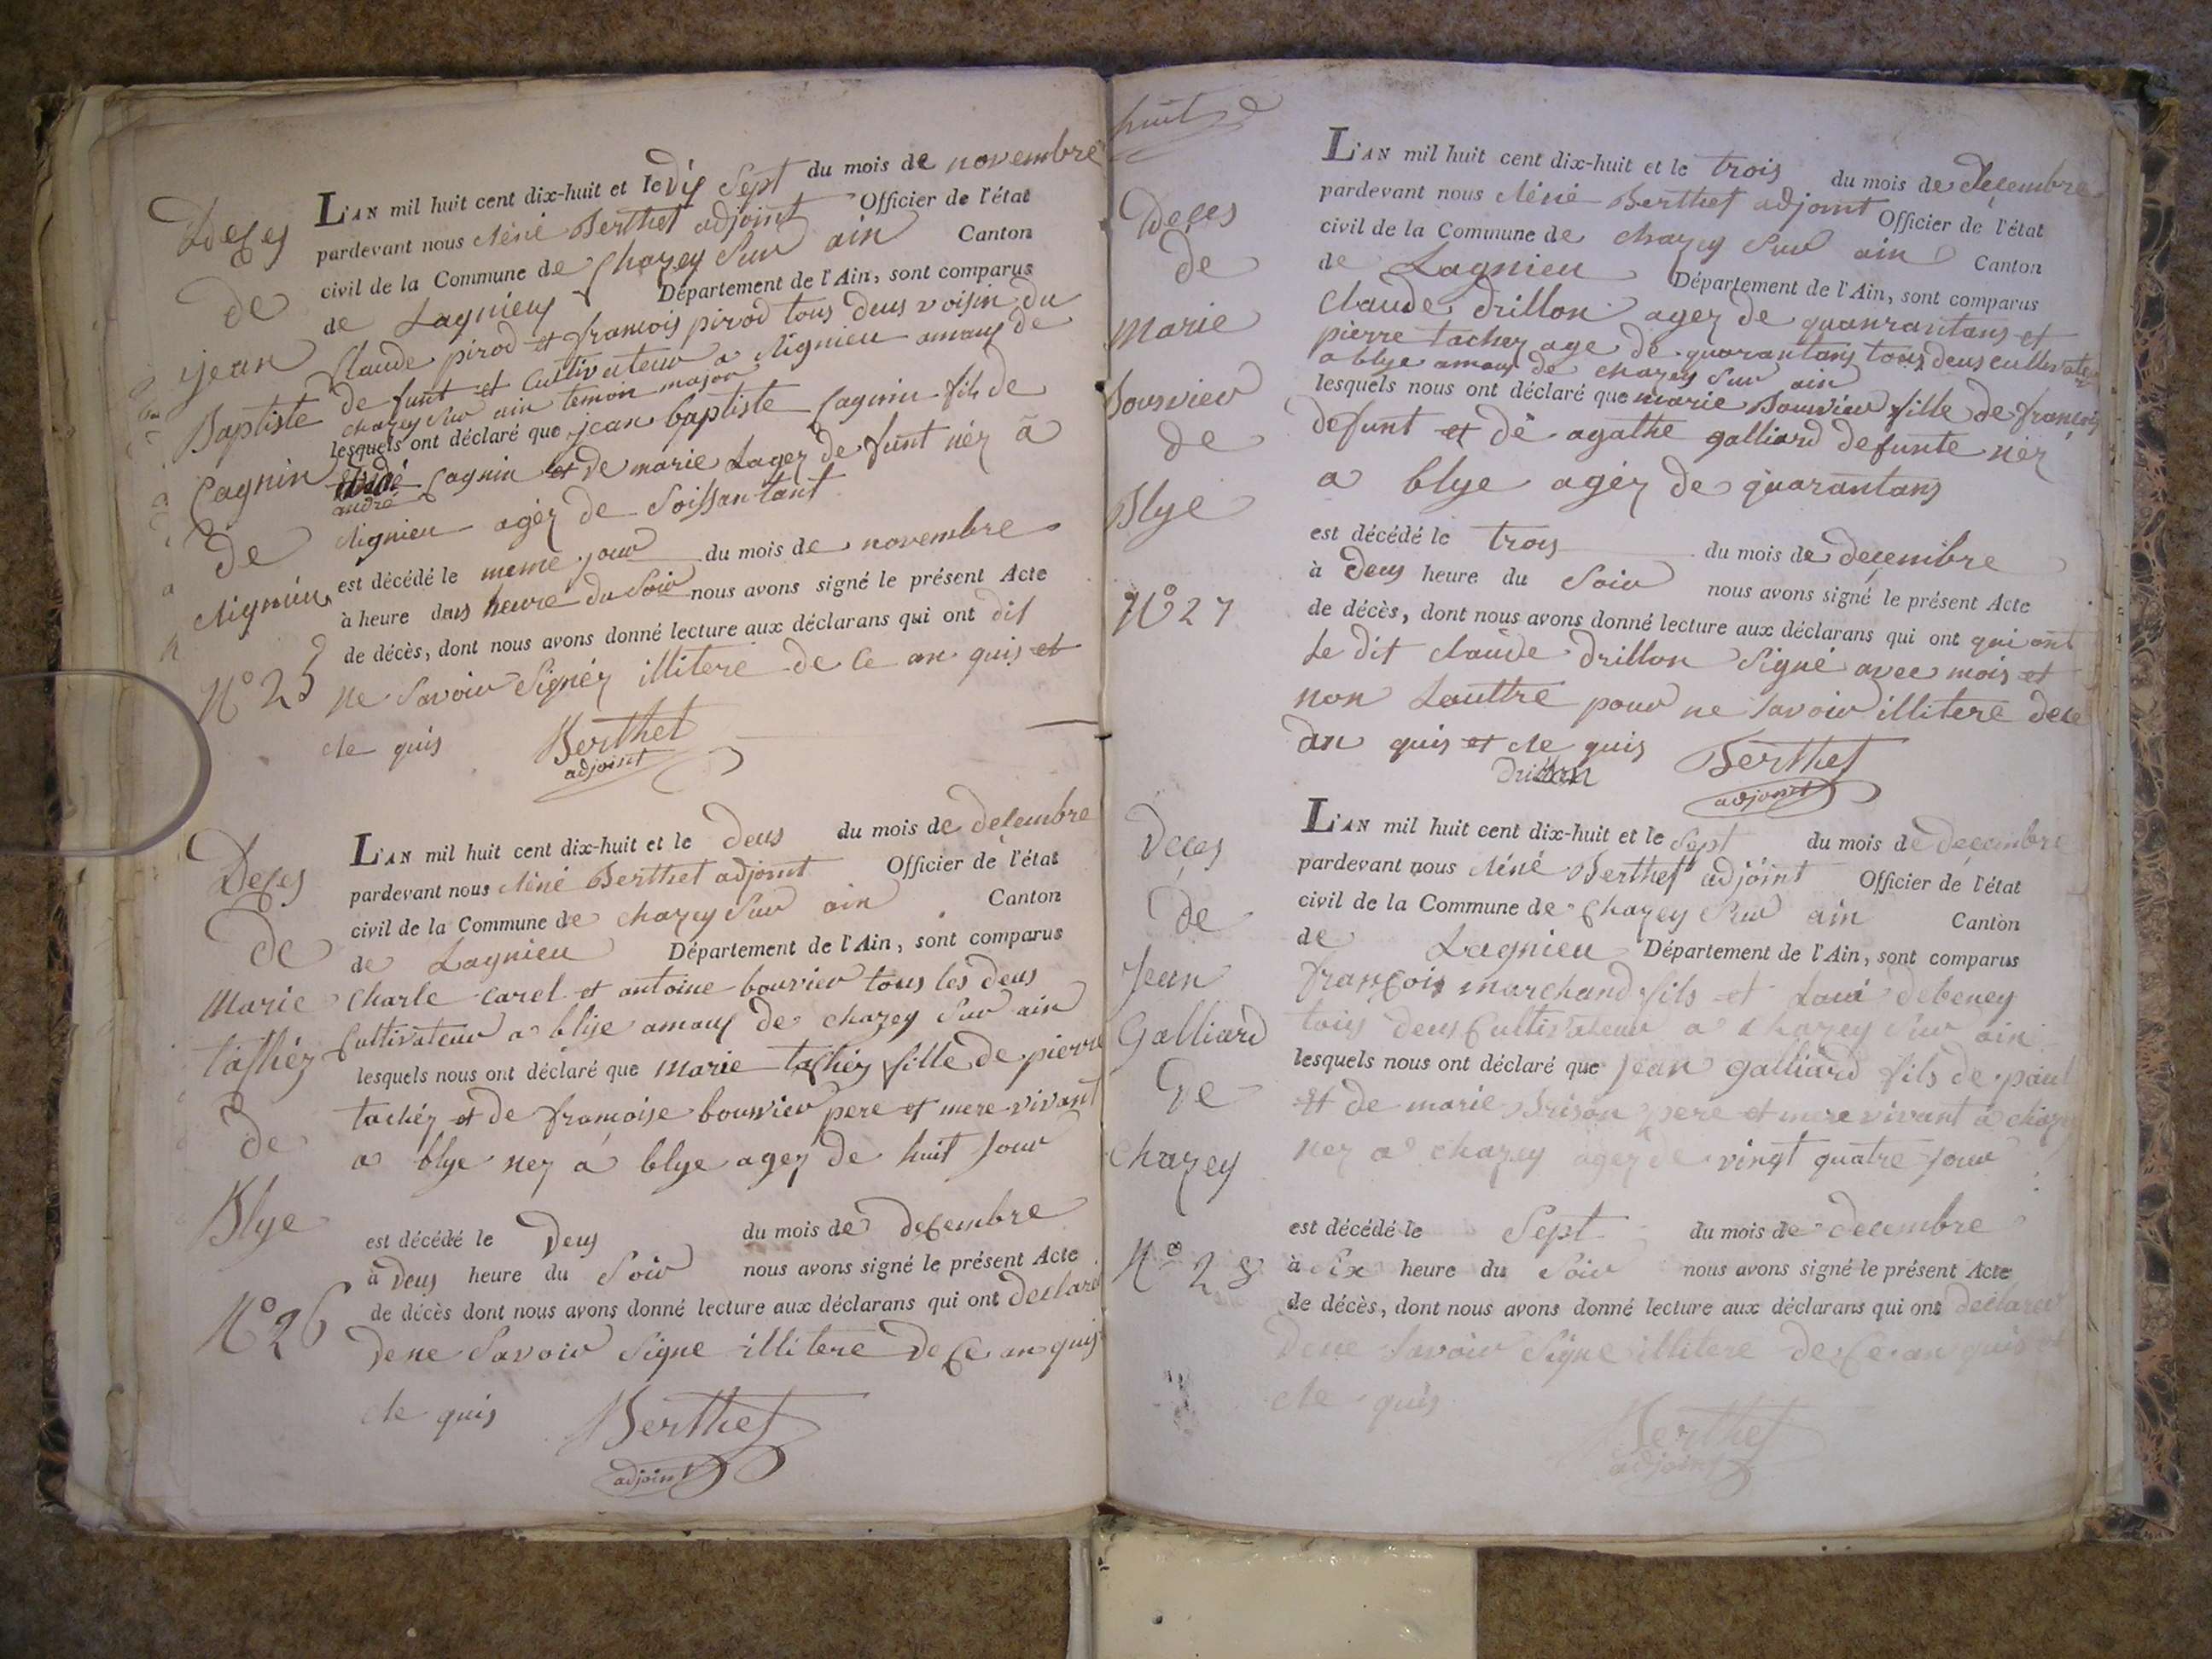 Deces
de
jean
Baptiste
Cagnin
de
Rignieu
N° 25
L'AN mil huit cent dix-huit et le dix Sept du mois de novembre
pardevant nous Réné Berthet adjoint Officier de l'état
civil de la Commune de Chazey Sur ain Canton
de Lagnieu Département de l'Ain, sont comparus
Claude pirod et francois pirod tous deus voisin du
de funt et Cultivateur a Rignieu amaus de
chazey Sur ain temoin major
lesquels ont déclaré que jean baptiste Cagnin fils de
andré Cagnin et de marie Lager de funt néz a
Rignieu agéz de Soissantant
est décédé le meme jour du mois de novembre
à heure deus heure du Soir nous avons signé le présent Acte
de décès, dont nous avons donné lecture aux déclarans qui ont dit
ne Savoir Signéz illitere de Ce an quis et
Re quis Berthet
adjoint
Deces
de
Marie
tachéz
de
Blye
N° 26
L'AN mil huit cent dix-huit et le deus du mois de decembre
pardevant nous Réné Berthet adjoint Officier de l'état
civil de la Commune de chazey Sur ain Canton
de Lagnieu Département de l'Ain, sont comparus
Charle Carel et antoine bouvier tous les deus
Cultivateur a blye amaus de chazey Sur ain
lesquels nous ont déclaré que Marie tachéz fille de pierre
tachéz et de francoise bouvier pere et mere vivant
a blye nez a blye agez de huit Jour
est décédé le Deus du mois de decembre
à Deus heure du Soir nous avons signé le présent Acte
de décès dont nous avons donné lecture aux déclarans qui ont declaré
de ne Savoir Signe illitere de Ce an quis
Re quis Berthet
adjoint
huit
Deces
de
Marie
Bouvier
de
Blye
N° 27
L'AN mil huit cent dix-huit et le trois du mois de decembre
pardevant nous Réné Berthet adjoint Officier de l'état
civil de la Commune de chazey Sur ain Canton
de Lagnieu Département de l'Ain, sont comparus
Claude drillon agez de quanrantans et
pierre tachez age de quarantans tous deus cultivateur
a blye amaus de chazey Sur ain
lesquels nous ont déclaré que marie Bouvier fille de francois
defunt et de agathe galliard defunte néz
a blye agéz de quarantans
est décédé le trois du mois de decembre
à Deus heure du Soir nous avons signé le présent Acte
de décès, dont nous avons donné lecture aux déclarans qui ont qui ont
Le dit claude drillon Signé avec mois et
non Lauttre pour ne Savoir illitere de ce
an quis et Re quis Berthet
drillon adjoint
Deces
de
Jean
Galliard
de
Chazey
N° 28
L'AN mil huit cent dix-huit et le Sept du mois de decembre
pardevant nous Réné Berthet adjoint Officier de l'état
civil de la Commune de Chazey Sur ain Canton
de Lagnieu Département de l'Ain, sont comparus
françois marchand fils et Loui debeney
tous deus Cultivateur a chazey Sur ain
lesquels nous ont déclaré que Jean galliard fils de paul
et de marie Brison pere et mere vivant a chazey
nez a chazey agez de vingt quatre jour
est décédé le Sept du mois de decembre
à Six heure du Soir nous avons signé le présent Acte
de décès, dont nous avons donné lecture aux déclarans qui ont declarer
de ne Savoir Signe illitere de Ce an quis et
Re quis
Berthet
adjoint